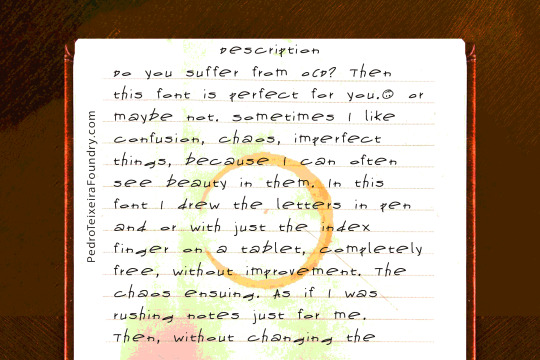 Description
Do you suffer from OCD? Then
this font is perfect for you.☺ or
maybe not. sometimes I like
confusion, chaos, imperfect
things, because I can often
see beauty in them. In this
font I drew the letters in pen
and or with just the index
finger on a tablet, completely
free, without improvement. The
chaos ensuing. As if I was
rushing notes just for me.
Then, without changing the
PedroTeixeiraFoundry.com